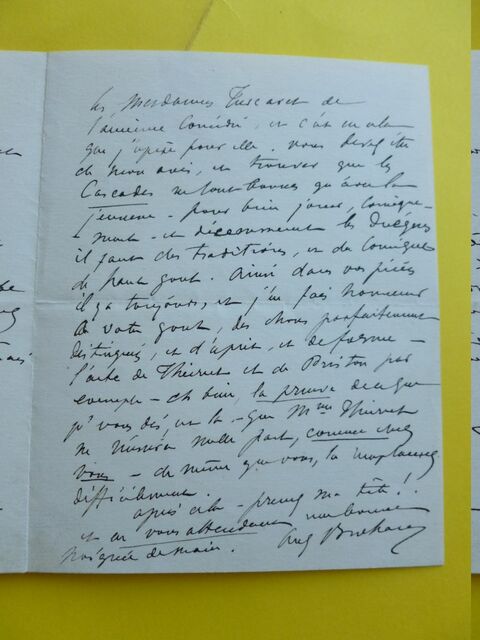 les Mesdames Turcaret de
l'ancienne Comédie, et c'est en cela
que j'opère pour elle. vous devez être
de mon avis, et trouver que les
Cascades ne sont bonnes qu'avec la
jeunesse - pour bien jouer, comique-
-ment - et décemment les Duègnes
il faut des traditions, et du Comique
de haut goût. Ainsi dans vos pièces
il y a toujours, et j'en fais honneur
à votre goût, des choses parfaitement
distinguées, et d'esprit, et de forme -
l'acte de Thierret et de Brixton par
exemple - eh bien, la preuve de ce que
je vous dis, est là - que Mme Thierret
ne réussira nulle part, comme chez
vous - de même que vous, la remplacerez
difficilement.
après cela - prenez ma tête!
et en vous attendant une bonne
poignée de main.